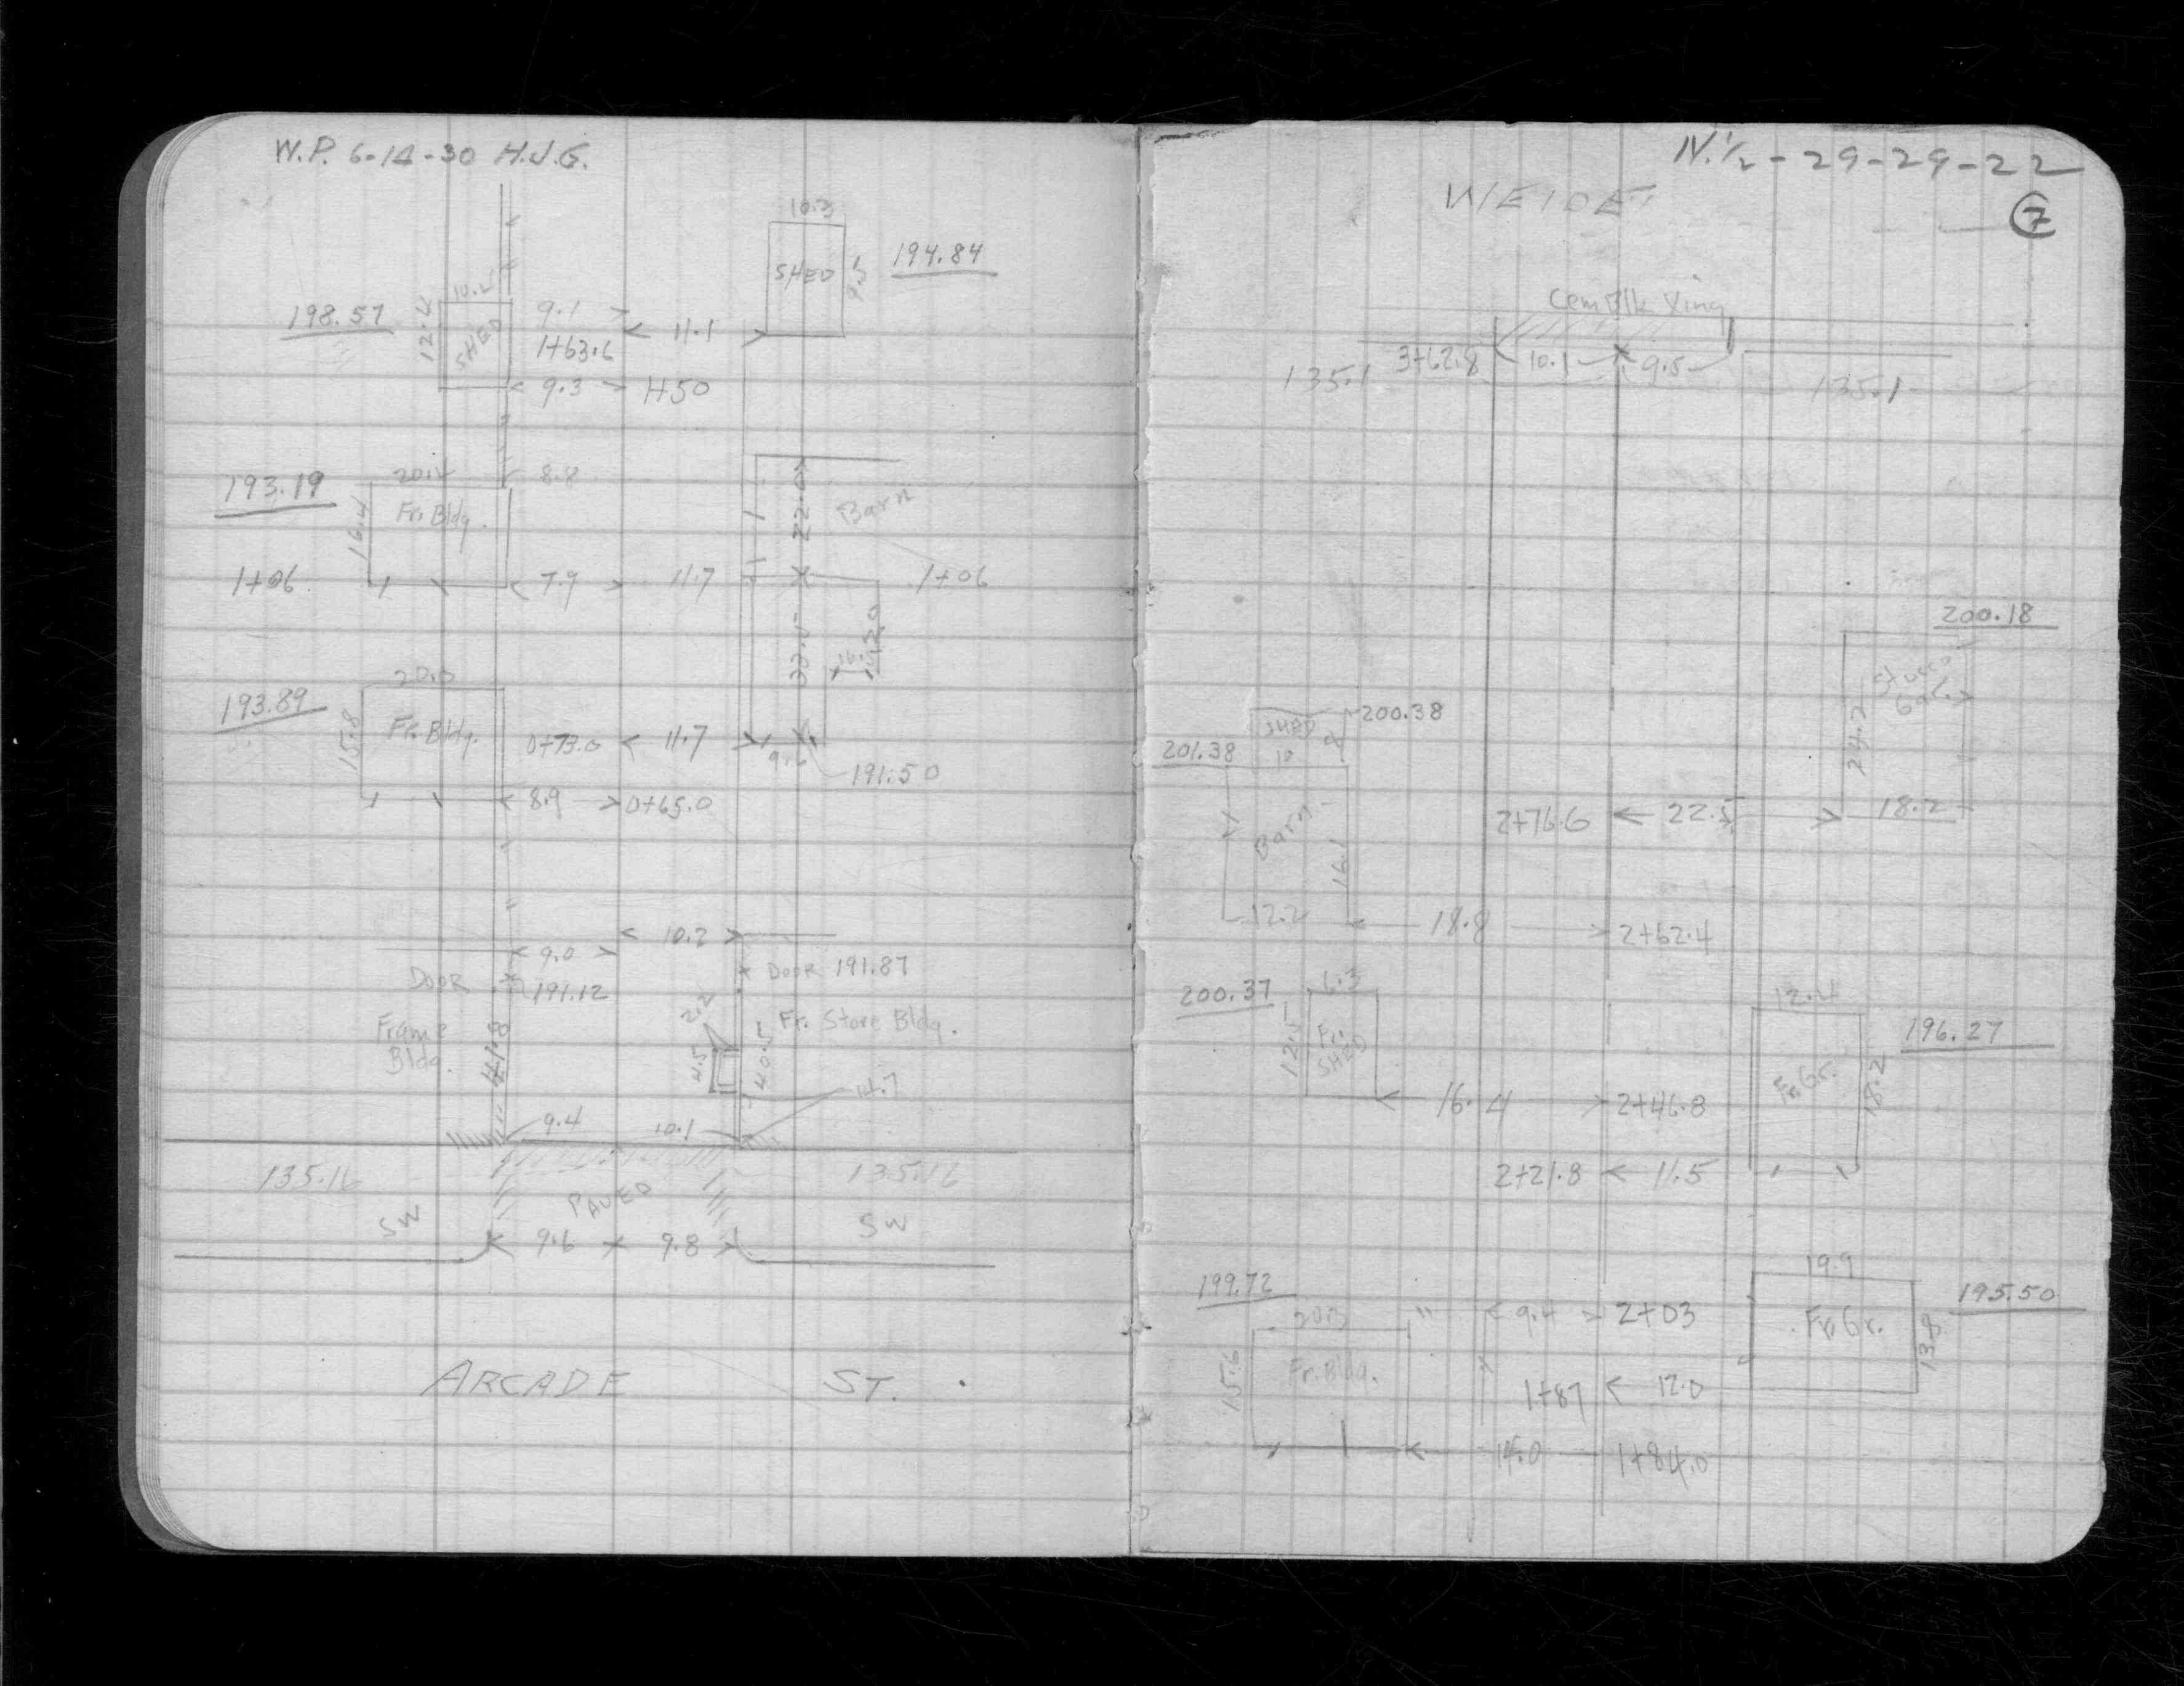 W.P. 6-14-30 H.J.G.
10.3
SHED
9.5
194.84
10.2
198.57
12.4
SHED
9.1
1+63.6
11.1
9.3
1+50
193.19
8.8
16.4
Fr. Bldg.
22.0
Barn
1+06
7.9
11.7
1+06
33.5
193.89
15.8
Fr. Bldg.
0+73.0
11.7
191.50
8.9
0+65.0
10.2
9.0
DOOR
191.12
DOOR 191.87
Frame
Bldg.
41.8
2.2
4.5
40.5
Fr. Store Bldg.
14.7
9.4
10.1
135.16
135.16
PAVED
SW
SW
9.6
9.8
ARCADE ST.
N.1/2-29-29-22
7
WEIDE
Cem Blk Xing
135.1
3+62.8
10.1
9.5
135.1
200.18
Stucco
Gar.
24.2
18.2
2+76.6
22.5
SHED
200.38
201.38
10
Barn
16.1
12.2
18.8
2+62.4
200.37
6.3
12.5
Fr.
SHED
16.4
2+46.8
12.4
196.27
Fr. Gr.
18.2
2+21.8
11.5
199.72
15.6
Fr. Bldg.
9.4
2+03
19.9
Fr. Gr.
13.8
195.50
1+87
12.0
1+84.0